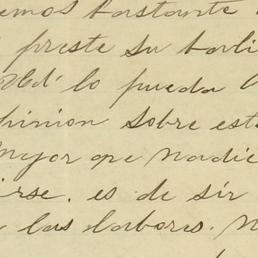 emos bastante
preste su
Ud. lo pueda
opinion sobre est
Mejor que nadie
irse. es de sir
las labores.